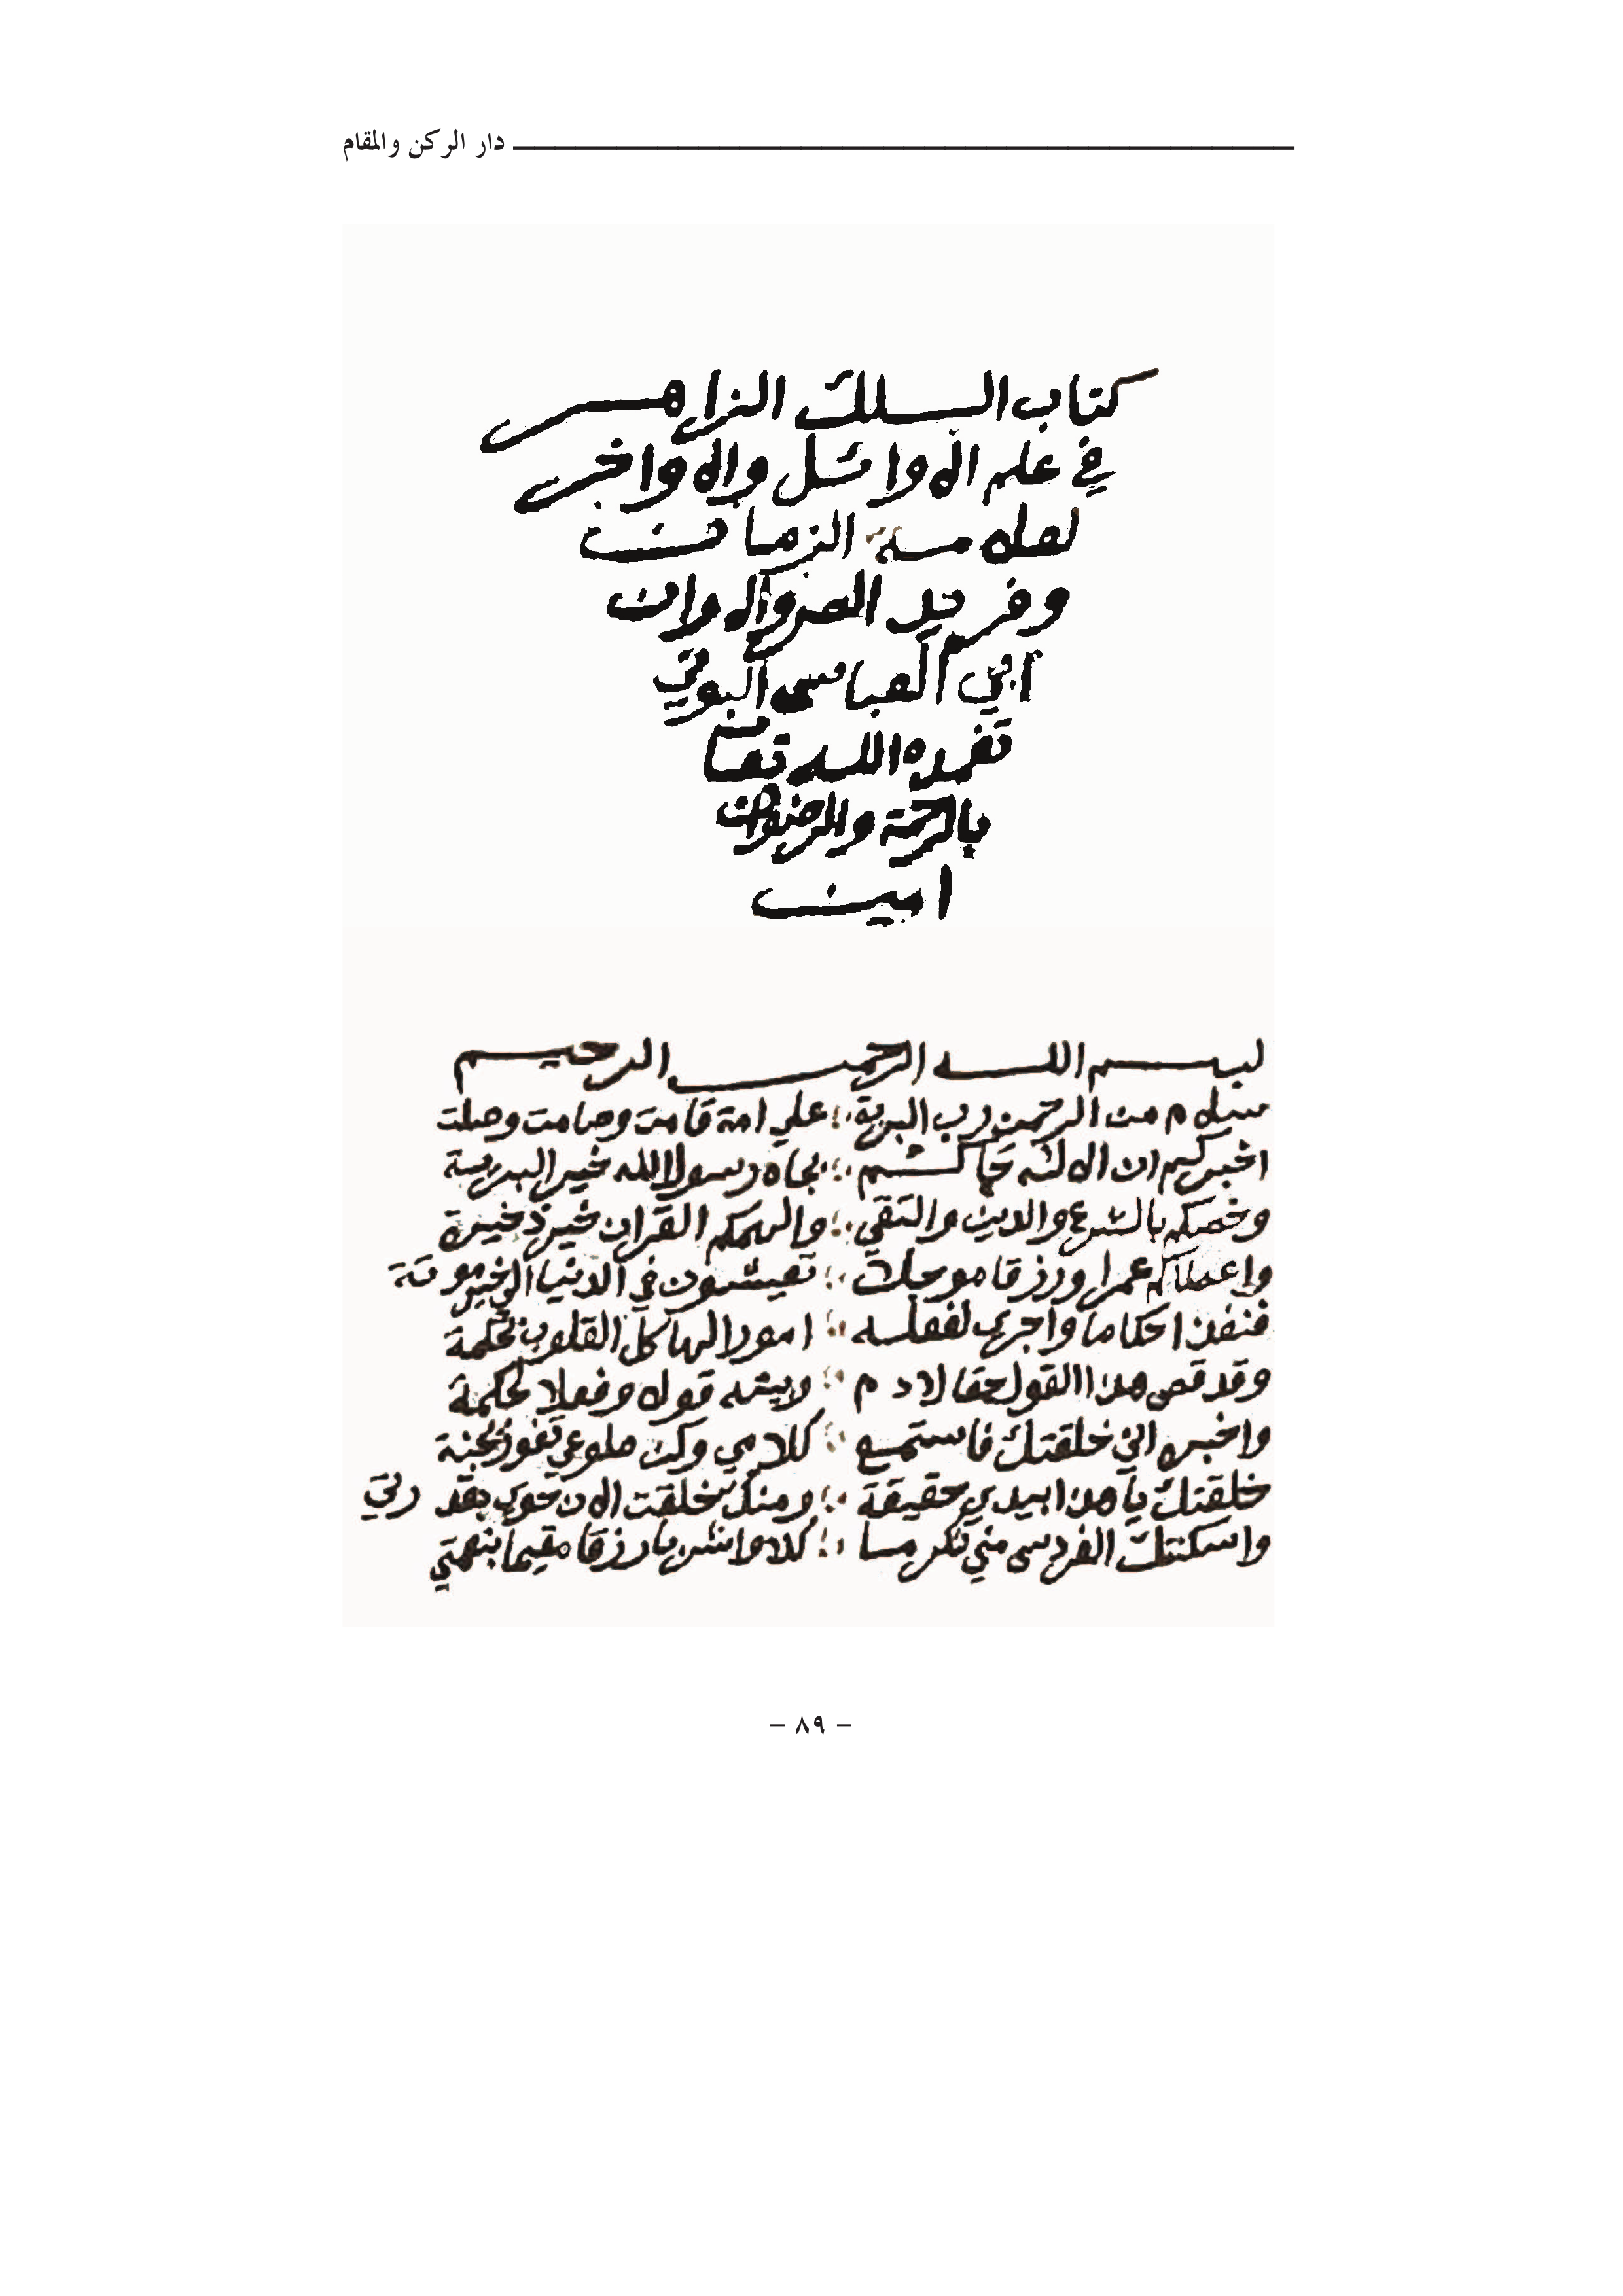 دار الركن والمقام
كتاب السلك الزاهر
في علم الاوائل والاواخر
لعلامة الزمان
وفريد العصر والاوان
ابي العباس البوني
تغمده الله تعا
بالرحمة والرضوان
امين
بسم الله الرحمن الرحيم
سلام من الرحمن رب البرية علي امة قامت وصامت وصلت
اخبركم ان الاله بجاه رسول الله خير البرية
وخصكم بالشرع والدين والتقي والهمكم القران خير ذخيرة
عمرا ورزقا موجلا تعيشون في الدنيا
فنفذ احكاما واجري لفعله امورا لها كل القلوب
وقد قص هذا القول حقا لادم قولا وفعلا لحكمة
واخبره اني خلقتك فاستمع كلامي وكن طوعي تفوز بجنة
خلقتك يا هذا بيدي حقيقة ومنك خلقت الان حوي بقدرتي
واسكنتك الفردس مني تكرما كلا واشربا رزقا مقيما بنعمتي
– ٨٩ –